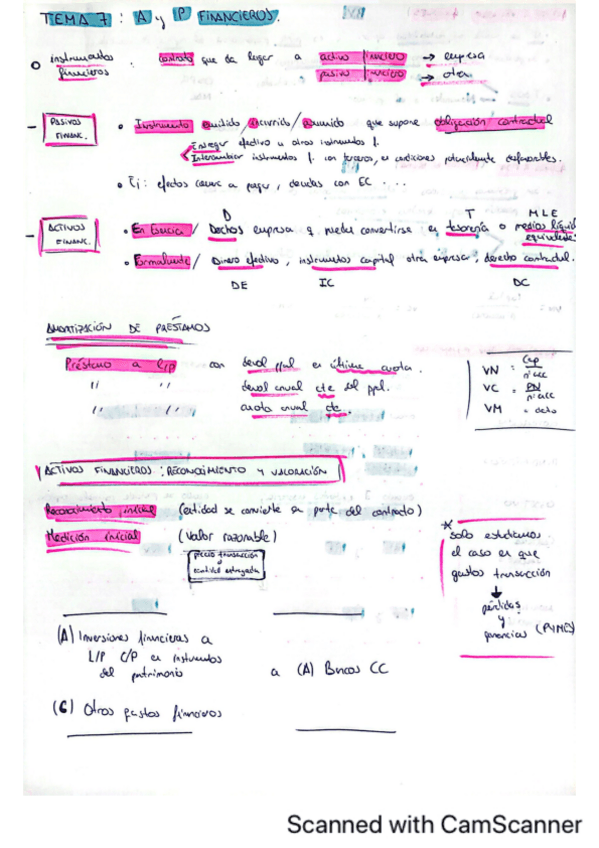 TEMA 7 : A y P FINANCIEROS.
instrumentos financieros : contrato que da lugar a activo financiero → empresa
pasivo financiero → otra
- PASIVOS FINANC.
• Instrumento emitido / incurrido / asumido que supone obligación contractual
Entregar efectivo u otros instrumentos f.
Intercambiar instrumentos f. con terceros, en condiciones potencialmente desfavorables.
• Ej: efectos comerc a pagar, deudas con EC ....
D T MLE
- ACTIVOS FINANC.
• En esencia / Dechos empresa q pueden convertirse en tesorería o medios líquid equivalente
• Formalmente / Dinero efectivo, instrumentos capital otra empresa, derecho contractual.
DE IC DC
AMORTIZACIÓN DE PRÉSTAMOS
Préstamo a L/p con devol ppal en última cuota.
" " devol anual cte del ppl.
" " cuota anual cte.
VN = Cap / nº acc
VC = PN / nº acc
VM =
ACTIVOS FINANCIEROS : RECONOCIMIENTO Y VALORACIÓN
Reconocimiento inicial (entidad se convierte en parte del contrato)
Medición inicial (Valor razonable)
precio transacción
o
cantidad entregada
* solo estudiamos
el caso en que
gastos transacción
↓
pérdidas
y
ganancias (PYMES)
(A) Inversiones financieras a
L/P C/P en instrumentos
del patrimonio
a (A) Bancos CC
(G) Otros gastos financieros
Scanned with CamScanner